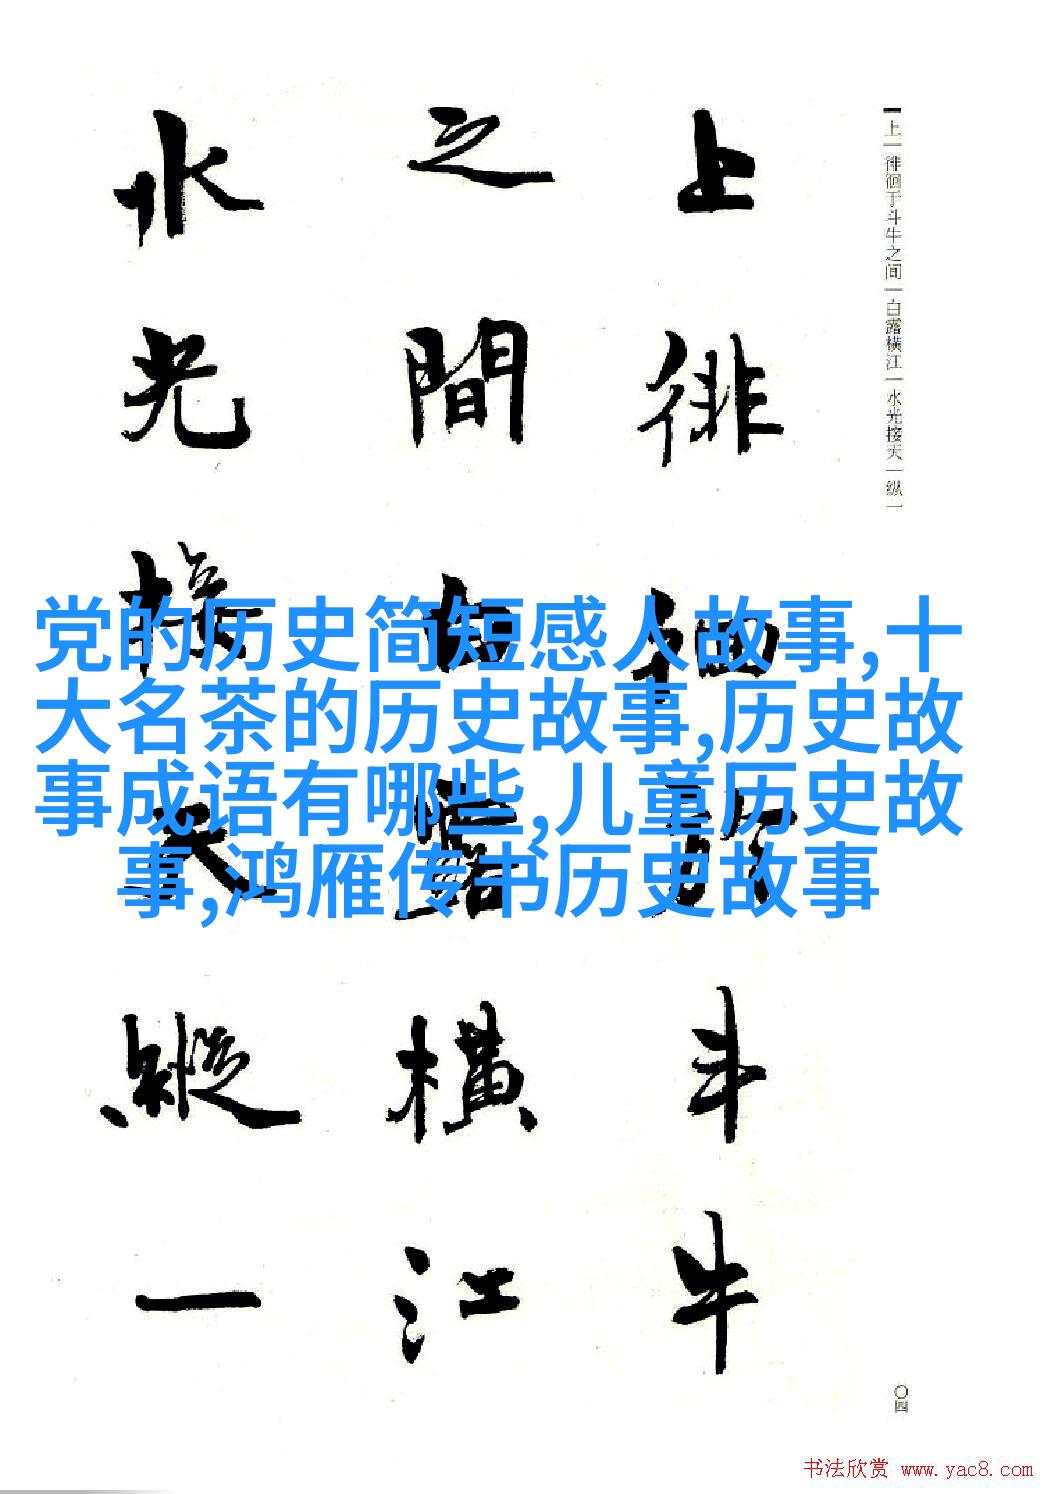 上一徘徊于斗牛之间一白露横江一水光接天一纵一
上徘徊於斗牛
之間白露橫江
水光接天縱一
党的历史简短感人故事,十
大名茶的历史故事,历史故
事成语有哪些,儿童历史故
事,鸿雁传书历史故事
〇四
书法欣赏 www.yac8.com